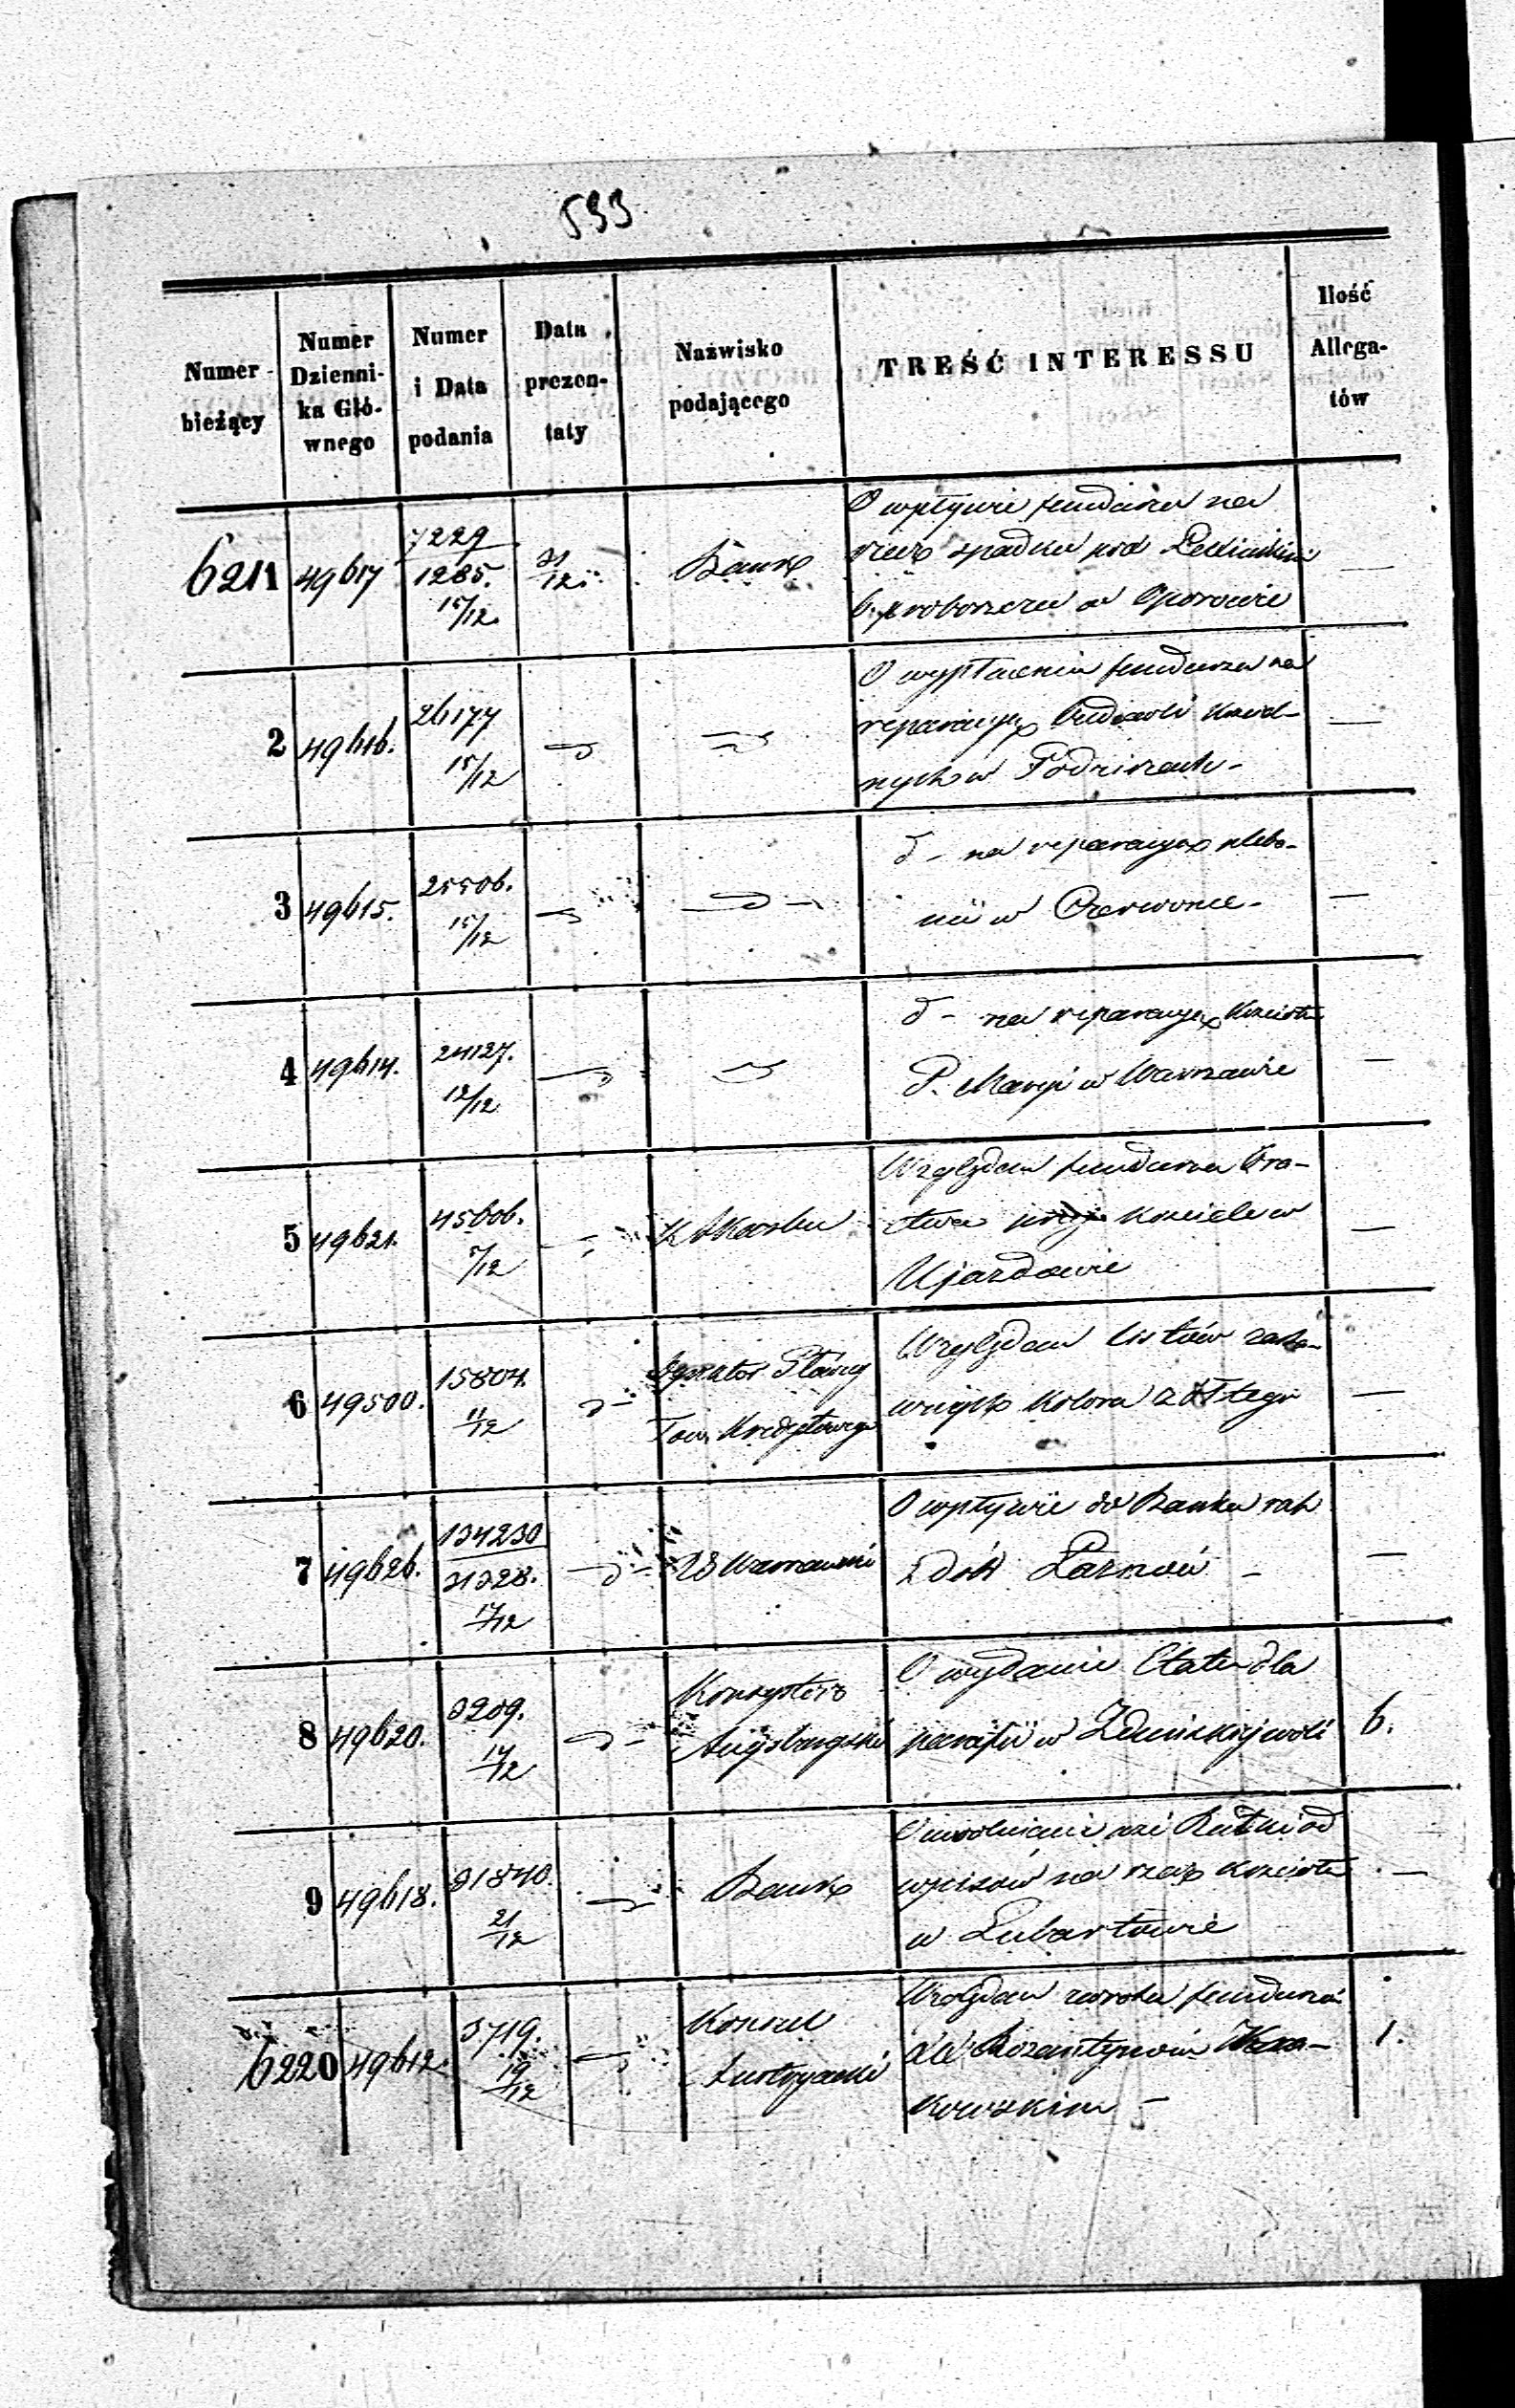 533
Numer bieżący
Numer Dzienni-ka Głó-wnego
Numer i Data podania
Data prezen-taty
Nazwisko podającego
TREŚĆ INTERESSU
Ilość Allega-tów
6211 49617 7229 1285. 15/12 31/12 Bank
O wpływie funduszu na
rzecz spadku pod
b. proboszczu w Oporowie —
2 49616. 26177 15/12
O wypłacenie funduszu na
reparacyę
nych w —
3 49615. 25506. 15/12
d - na reparacyę pleba-
nii w Czerwonce - —
4 49614. 24127. 12/12
d - na reparacyę Kościoła
P. Maryi w Warszawie —
5 49621. 45606. 5/12
Względem funduszu Bra-
ctwa przy kościele w
Ujazdowie —
6 49500. 15804. 11/12
Tow. Kredytowego
Względem listów zasta-
wnych koloru żółtego —
7 49626. 134230 31328. 17/12 Warszawski
O wpływie do Banku rat
z dóbr Łaznów - —
8 49620. 3209. 14/12
Konsystorz
Augsburgski
O wydanie Etatu dla
parafii w Zduńskiej woli 6.
9 49618. 31840. 21/12 Bank
O uwolnienie Rudki od
wpisów na rzecz kościoła
w Lubartowie —
6220 49612. 3719. 19/12
Konsul
Austryacki
Względem zwrotu funduszu
kowskim - 1.